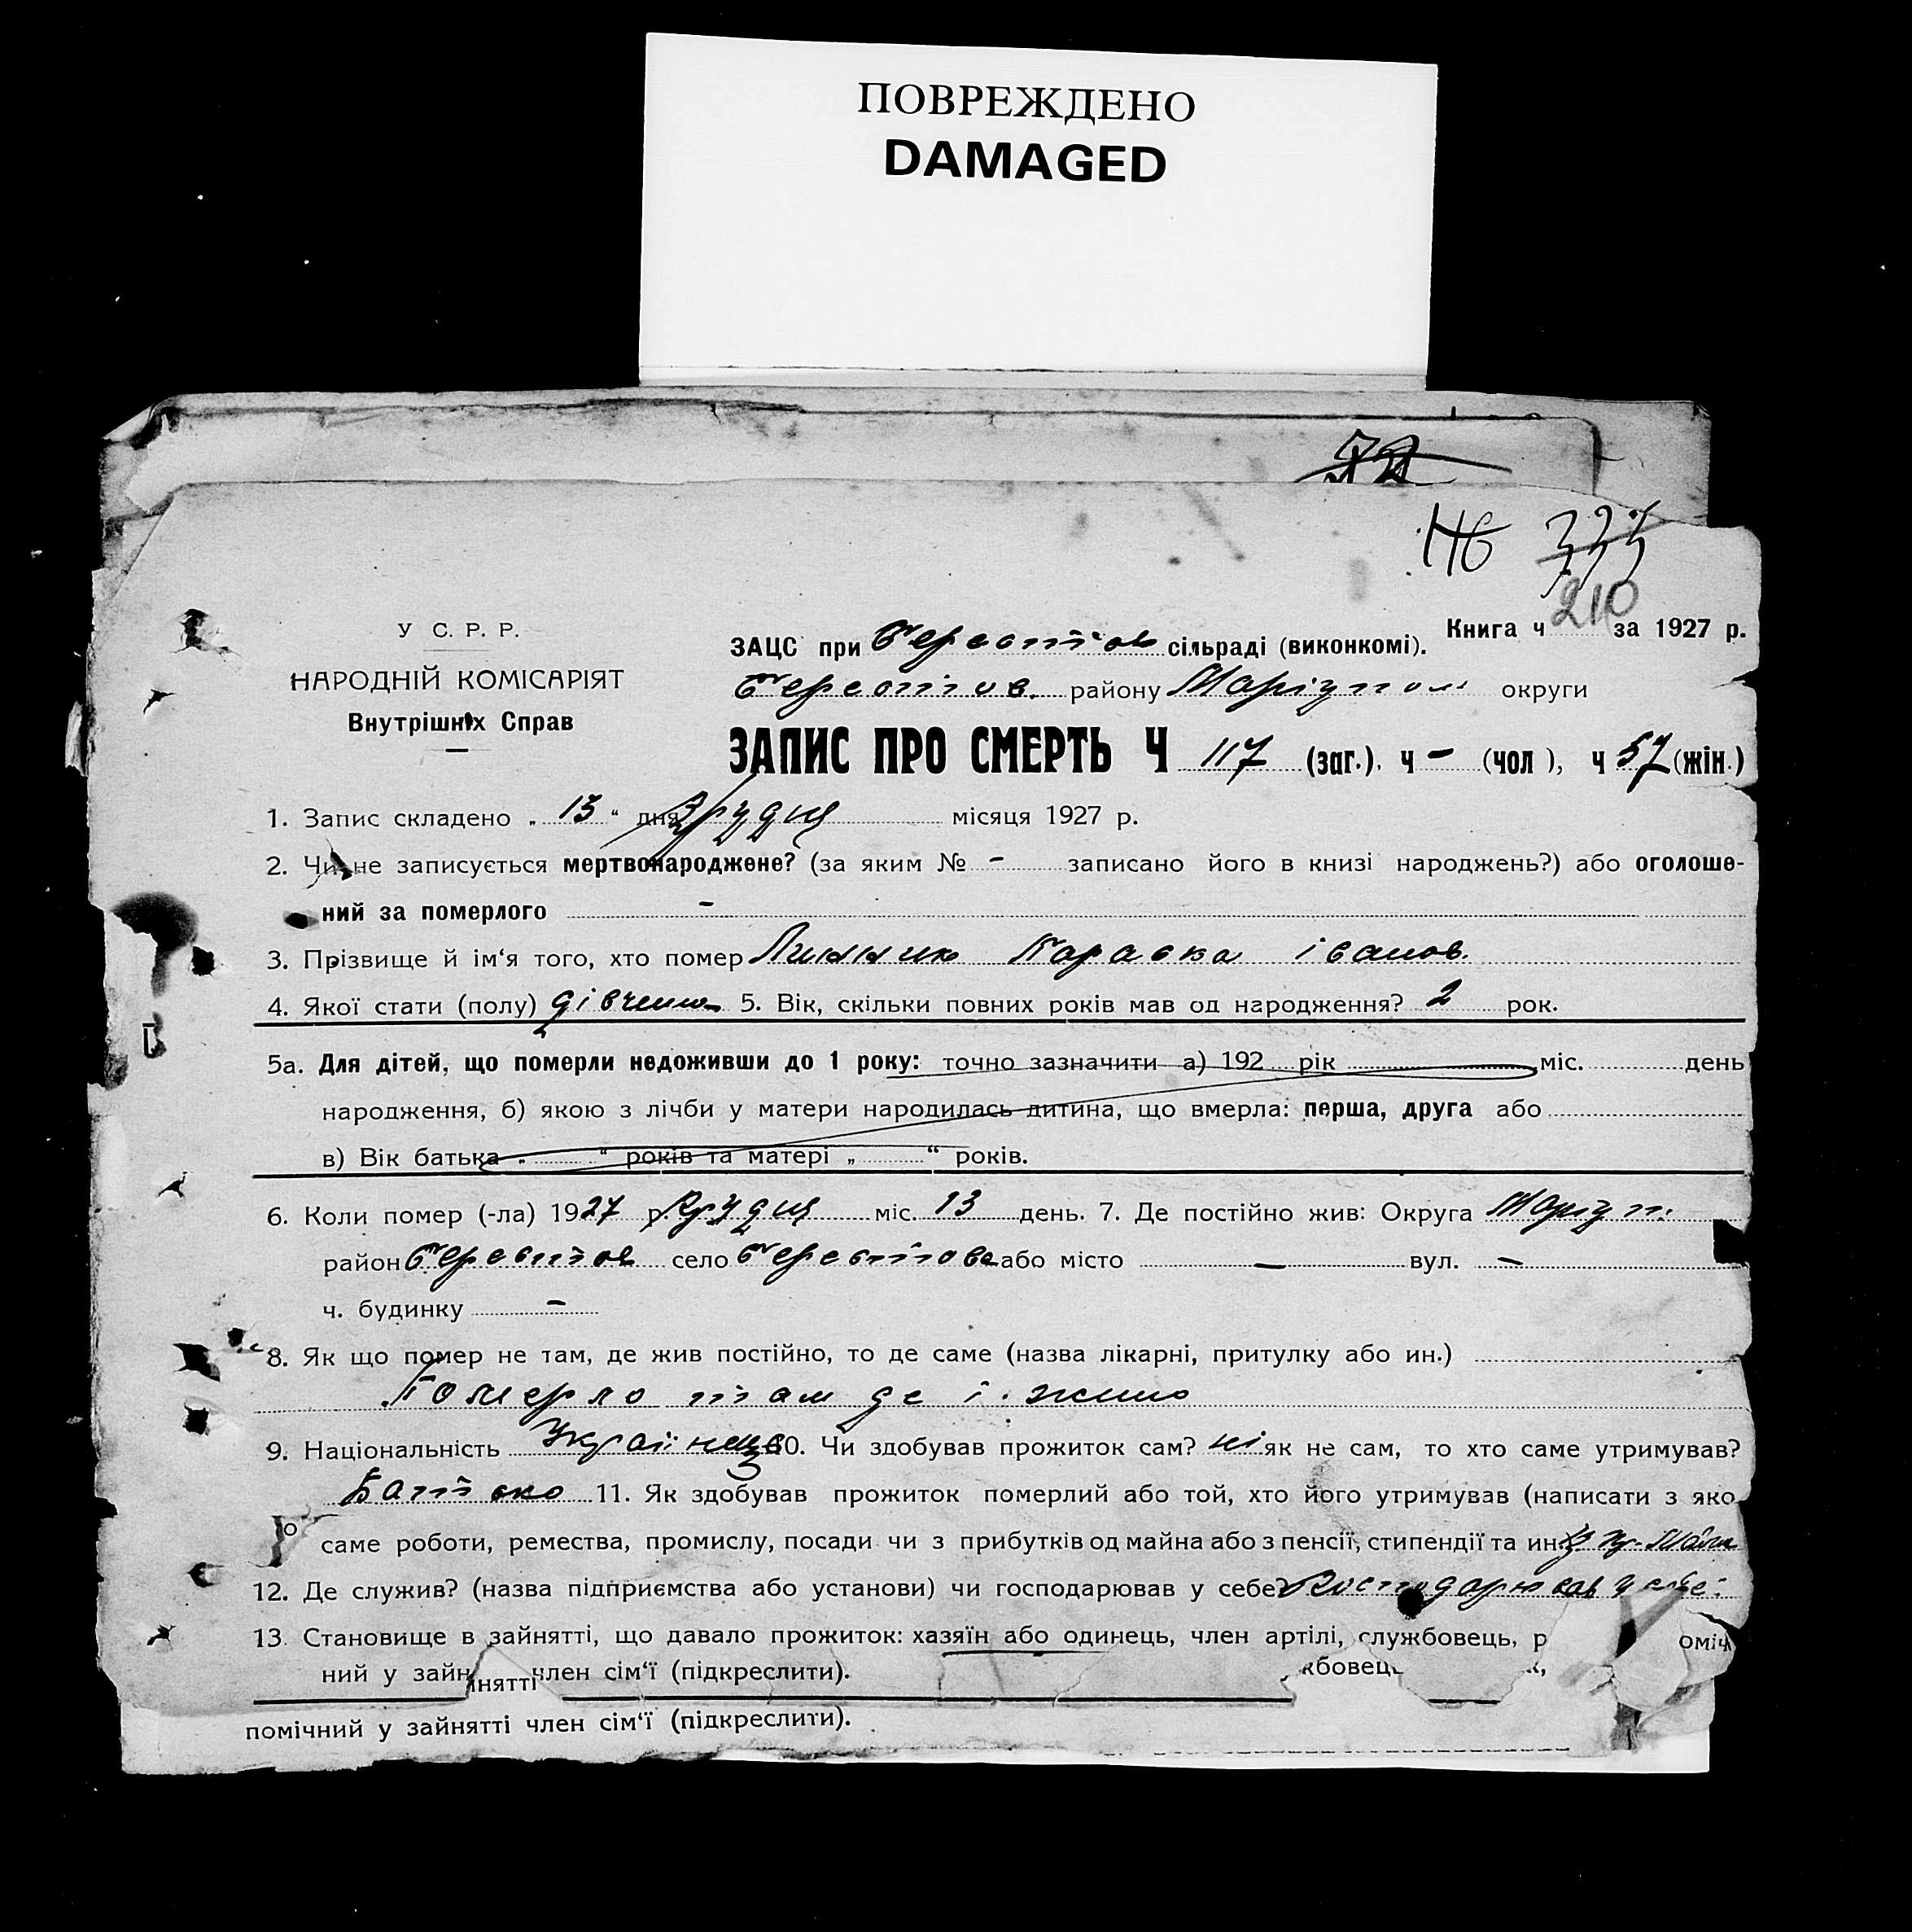 ПОВРЕЖДЕНО
DAMAGED
210
У С. Р. Р.
НАРОДНІЙ КОМІСАРІЯТ
Внутрішніх Справ
Книга ч за 1927 р.
ЗАЦС при Берестів сільраді (виконкомі).
Берестів. району Маріупол округи
ЗАПИС ПРО СМЕРТЬ Ч 117 (заг.), ч - (чол), ч 57 (жін.)
1. Запис складено „ 13 “ дня Грудня місяця 1927 р.
2. Чи не записується мертвонароджене? (за яким № - записано його в книзі народжень?) або оголоше-
ний за померлого -
3. Прізвище й ім‘я того, хто помер Параска іванов.
4. Якої стати (полу) дівчина 5. Вік, скільки повних років мав од народження? 2 рок.
5а. Для дітей, що померли недоживши до 1 року: точно зазначити а) 192 рік міс. день
народження, б) якою з лічби у матери народилась дитина, що вмерла: перша, друга або
в) Вік батька „ “ років та матері „ “ років.
6. Коли помер (-ла) 1927 р. Грудня міс. 13 день. 7. Де постійно жив: Округа Маріуп.
район Берестов село Берестово або місто — вул. —
ч. будинку -
8. Як що помер не там, де жив постійно, то де саме (назва лікарні, притулку або ин.)
Померло там де і жило
9. Національність 10. Чи здобував прожиток сам? ні як не сам, то хто саме утримував?
Батько 11. Як здобував прожиток померлий або той, хто його утримував (написати з яко
го
саме роботи, ремества, промислу, посади чи з прибутків од майна або з пенсії, стипендії та ин.
12. Де служив? (назва підприємства або установи) чи господарював у себе? Господарював у себе
13. Становище в зайнятті, що давало прожиток: хазяїн або одинець, член артілі, службовець, р оміч
ний у зайн нятті член сім‘ї (підкреслити). жбовець
помічний у зайнятті член сім‘ї (підкреслити).